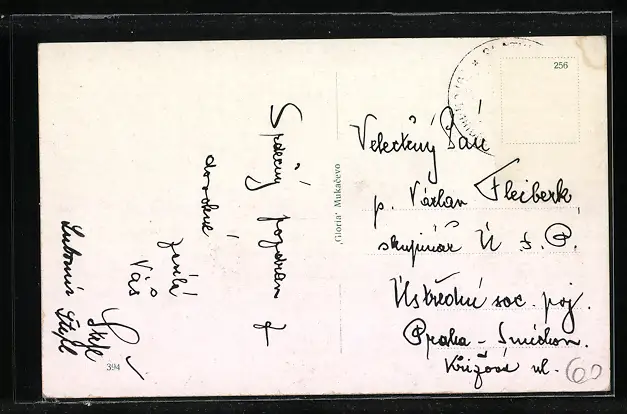 Srdečný pozdrav z
dovolené
zasílá
Vás
Lubomír
394
„Gloria” Mukačevo
256
Velectěný Pán
p. Václav Fleiberk
skupinář Ú. S. P.
Ústřední soc. poj.
Praha – Smíchov.
Křižová ul.
60